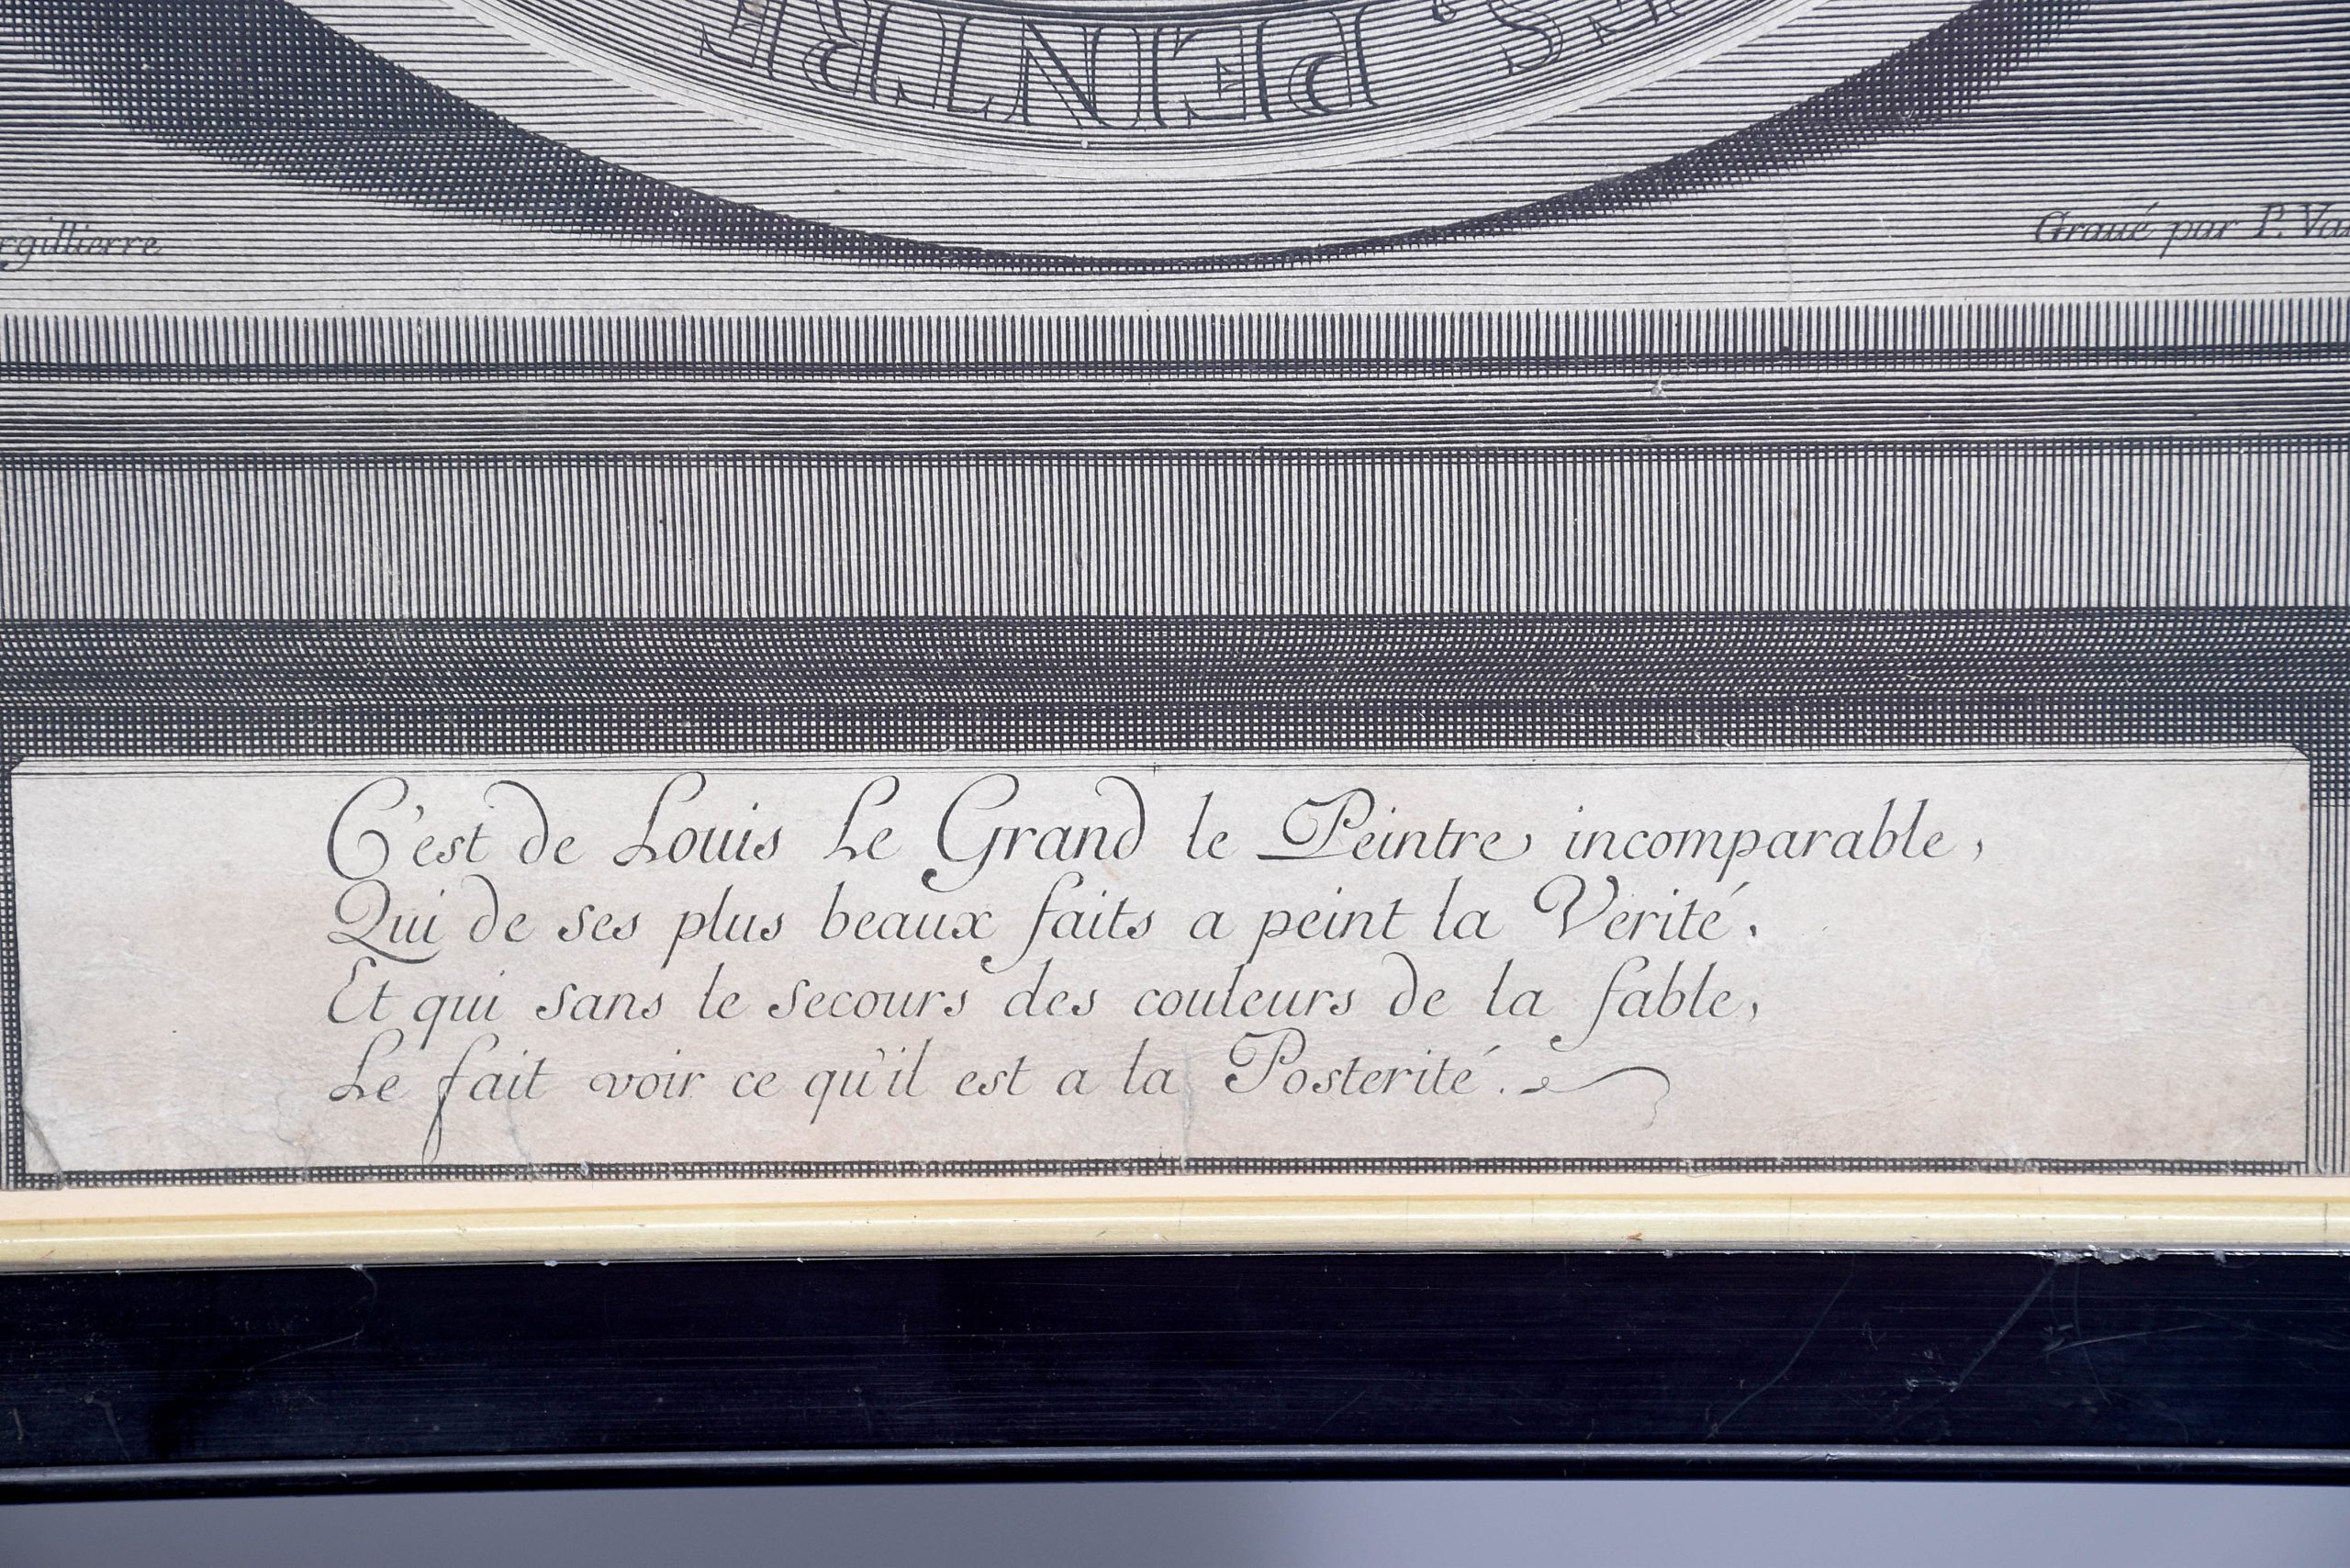 PEINTRE
rgillierre
Graué par P. Va
C'est de Louis Le Grand le Peintre incomparable,
Qui de ses plus beaux faits a peint la Verité.
Et qui sans le secours des couleurs de la fable,
Le fait voir ce qu'il est a la Posterité.